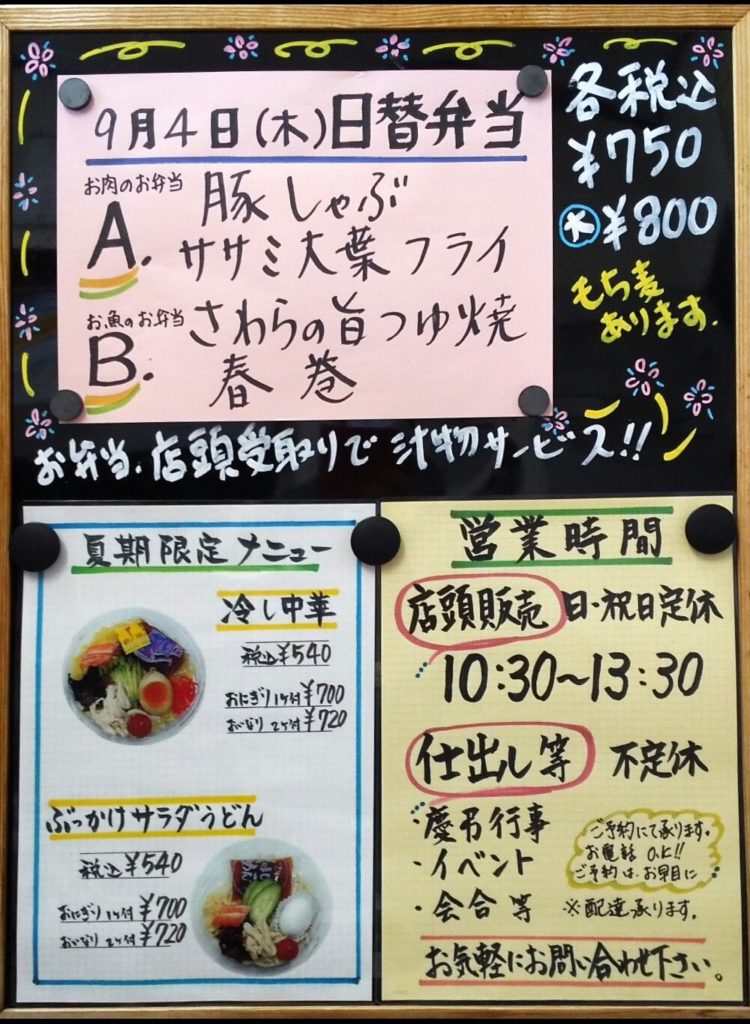 9月4日(木)日替弁当
お肉のお弁当
A. 豚しゃぶ
ササミ大葉フライ
お魚のお弁当
B. さわらの旨つゆ焼
春巻
各税込
¥750
大 ¥800
もち麦
あります.
お弁当、店頭受取りで汁物サービス!!
夏期限定メニュー
冷し中華
税込¥540
おにぎり1ヶ付¥700
おいなり2ヶ付¥720
ぶっかけサラダうどん
税込¥540
おにぎり1ヶ付¥700
おいなり2ヶ付¥720
営業時間
店頭販売 日・祝日定休
10:30〜13:30
仕出し等 不定休
・慶弔行事
・イベント
・会合等
ご予約にて承ります。
お電話OK!!
ご予約は、お早目に
※配達承ります。
お気軽にお問い合わせ下さい。